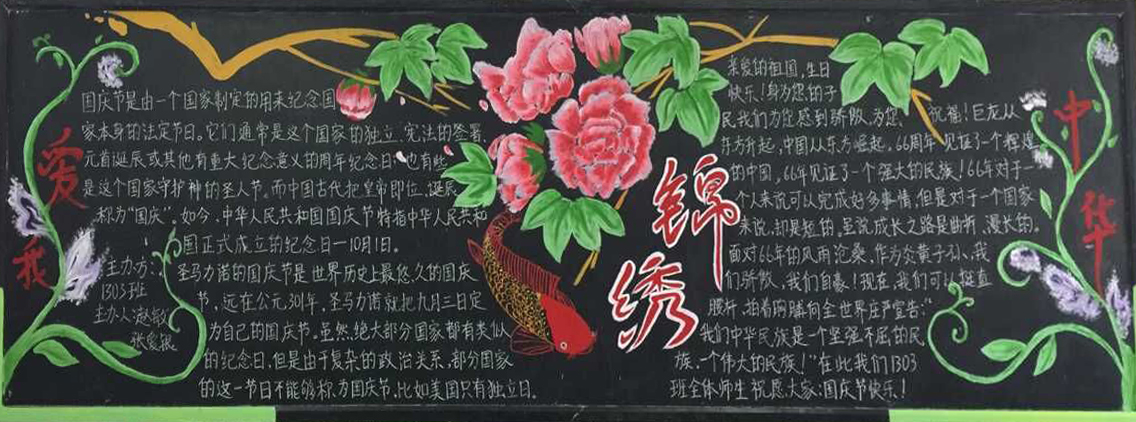 爱我
锦绣
中华
国庆节是由一个国家制定的用来纪念国
家本身的法定节日。它们通常是这个国家的独立、宪法的签署、
元首诞辰或其他有重大纪念意义的周年纪念日;也有些
是这个国家守护神的圣人节。而中国古代把皇帝即位、诞辰
称为“国庆”。如今,中华人民共和国国庆节特指中华人民共和
国正式成立的纪念日—10月1日。
圣马力诺的国庆节是世界历史上最悠久的国庆
节,远在公元301年,圣马力诺就把九月三日定
为自己的国庆节。虽然绝大部分国家都有类似
的纪念日,但是由于复杂的政治关系,部分国家
的这一节日不能够称为国庆节,比如美国只有独立日。
主办方:
1303班
主办人:赵敏
亲爱的祖国,生日
快乐!身为您的子
民我们为您感到骄傲,为您祝福!巨龙从
东方升起,中国从东方崛起。66周年见证了一个辉煌
的中国,66年见证了一个强大的民族!66年对于一
个人来说可以完成好多事情,但是对于一个国家
来说,却是短的,虽说成长之路是曲折、漫长的。
面对66年的风雨沧桑,作为炎黄子孙,我
们骄傲,我们自豪!现在,我们可以挺直
腰杆,拍着胸脯向全世界庄严宣告:“
我们中华民族是一个坚强不屈的民
族,一个伟大的民族!”在此我们1303
班全体师生祝愿大家:国庆节快乐!